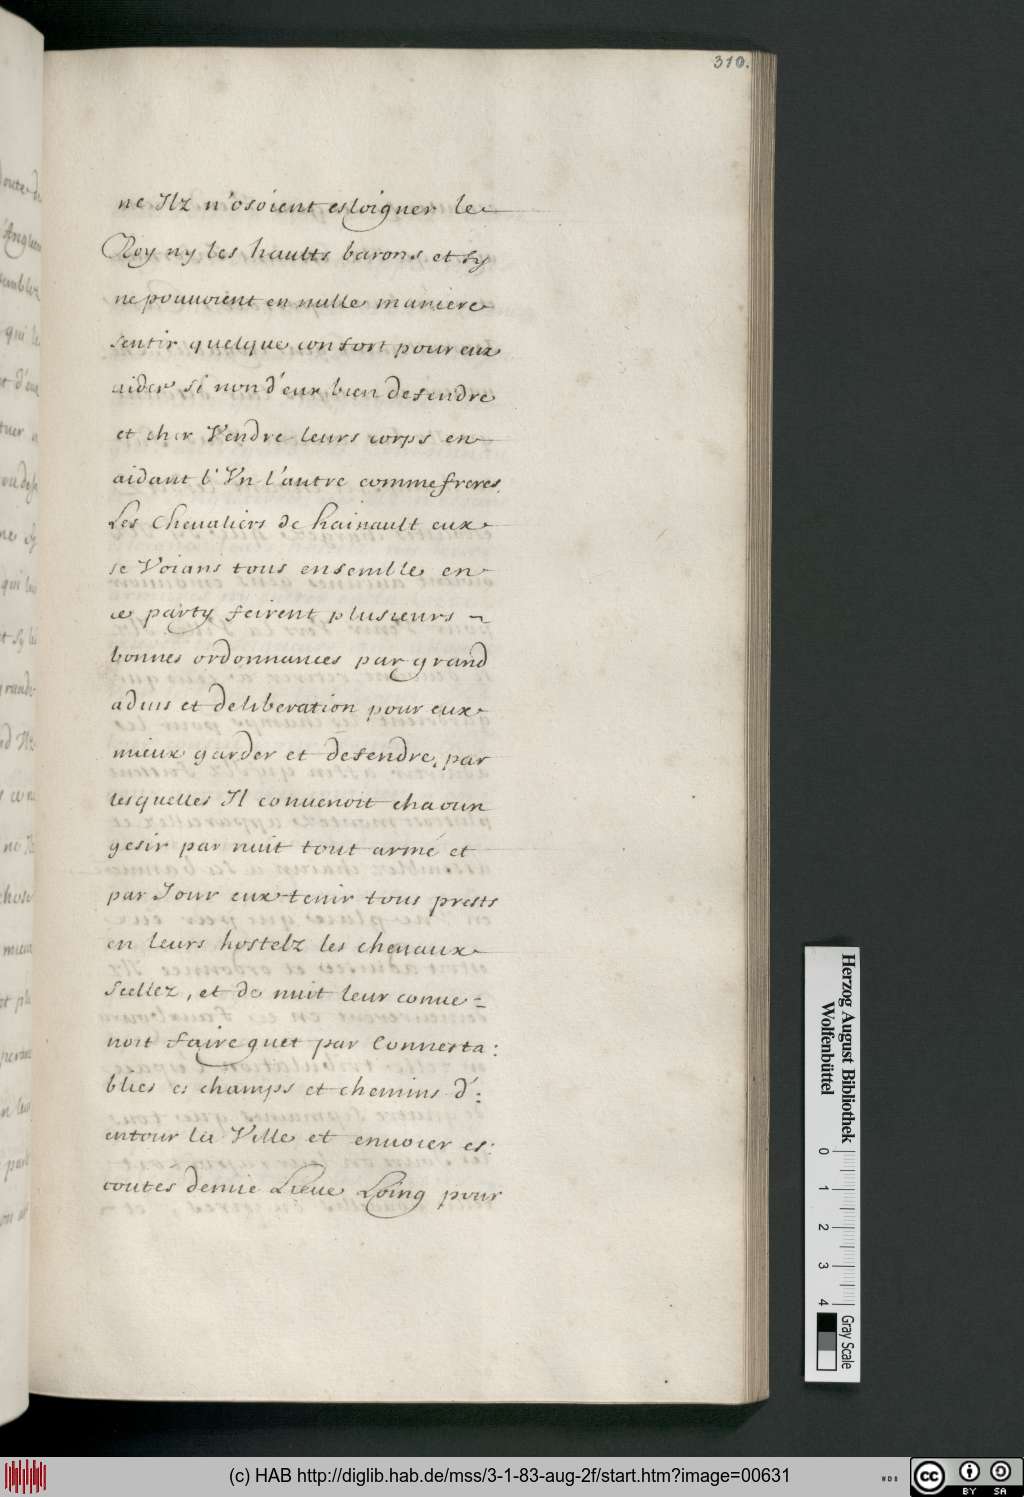 310.
ne Ilz n'osoient esloigner le
Roy ny les haultz barons et sy
ne pouuoient en nulle maniere
sentir quelque confort pour eux
aider si non d'eux bien defendre
et cher Vendre leurs corps en
aidant l'Vn l'autre comme freres,
Les Chevaliers de hainault eux
se Voians tous ensemble en
ce party feirent plusieurs ~
bonnes ordonnances par grand
aduis et deliberation pour eux
mieux garder et defendre, par
lesquelles Il conuenoit chacun
gesir par nuit tout armé et
par Jour eux tenir tous prests
en leurs hostelz les cheuaux
Scellez, et de nuit leur conue=
noit faire guet par Connesta:
blies es champs et chemins d':
entour la Ville et enuoier es:
coutes demie Lieue Loing pour
Herzog August Bibliothek
Wolfenbüttel
0 1 2 3 4
Gray Scale
(c) HAB http://diglib.hab.de/mss/3-1-83-aug-2f/start.htm?image=00631
WDB
cc BY SA